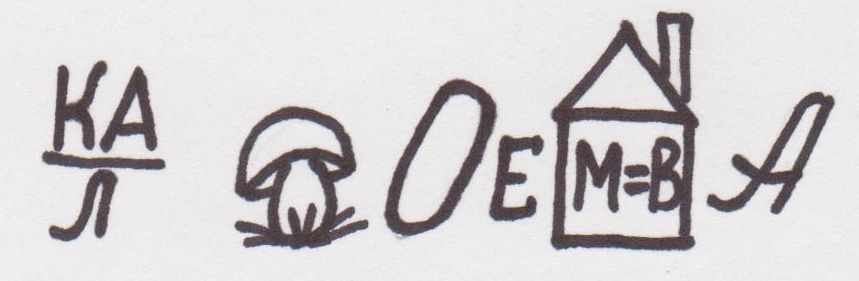 КА
Л
О Е М=В А